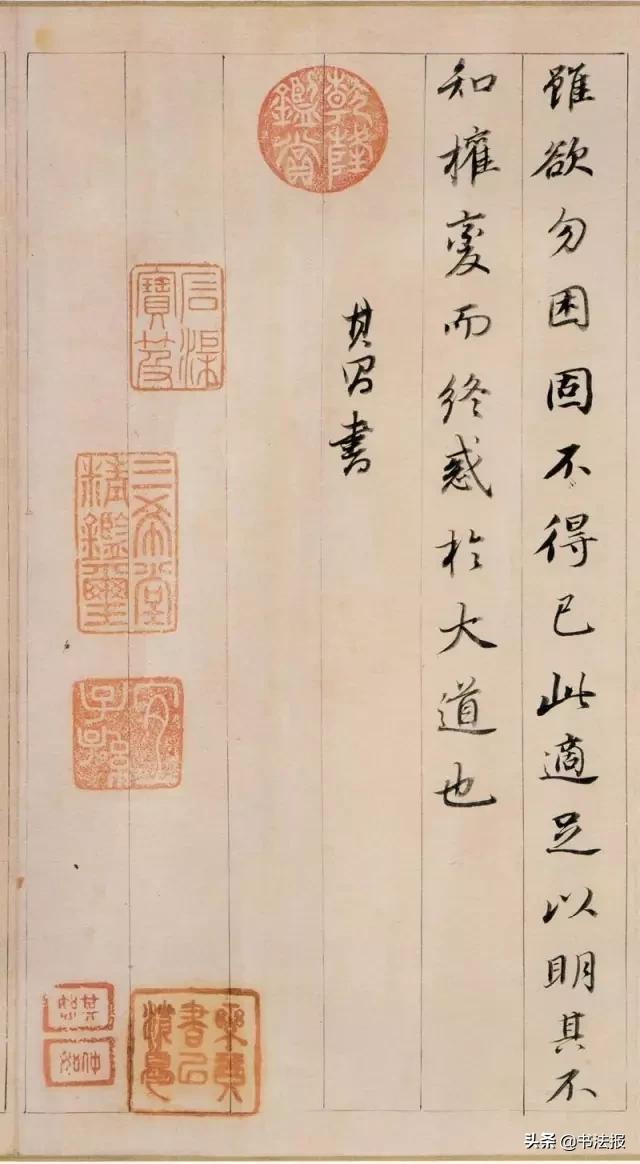 雖欲勿困固不得已此適足以明其不
知權變而終惑於大道也
其昌書
乾隆鑑賞
三希堂精鑑璽
宜子孫
头条 @书法报